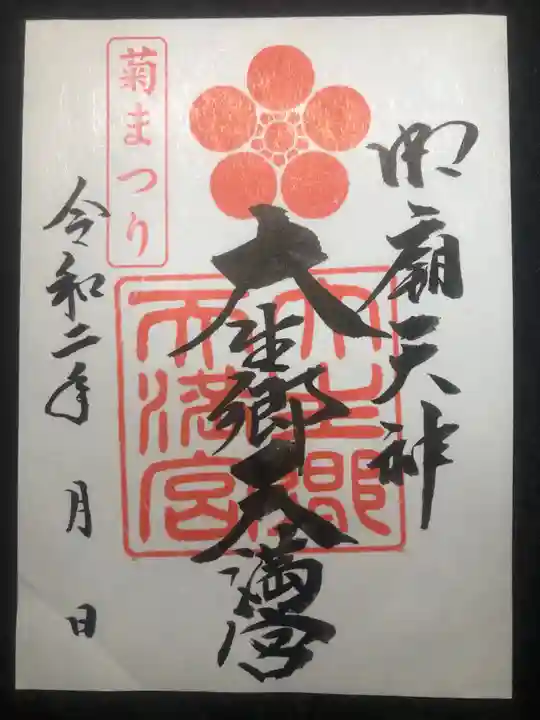 御廟天神
大生郷天満宮
大生郷
天満宮
菊まつり
令和二年 月 日